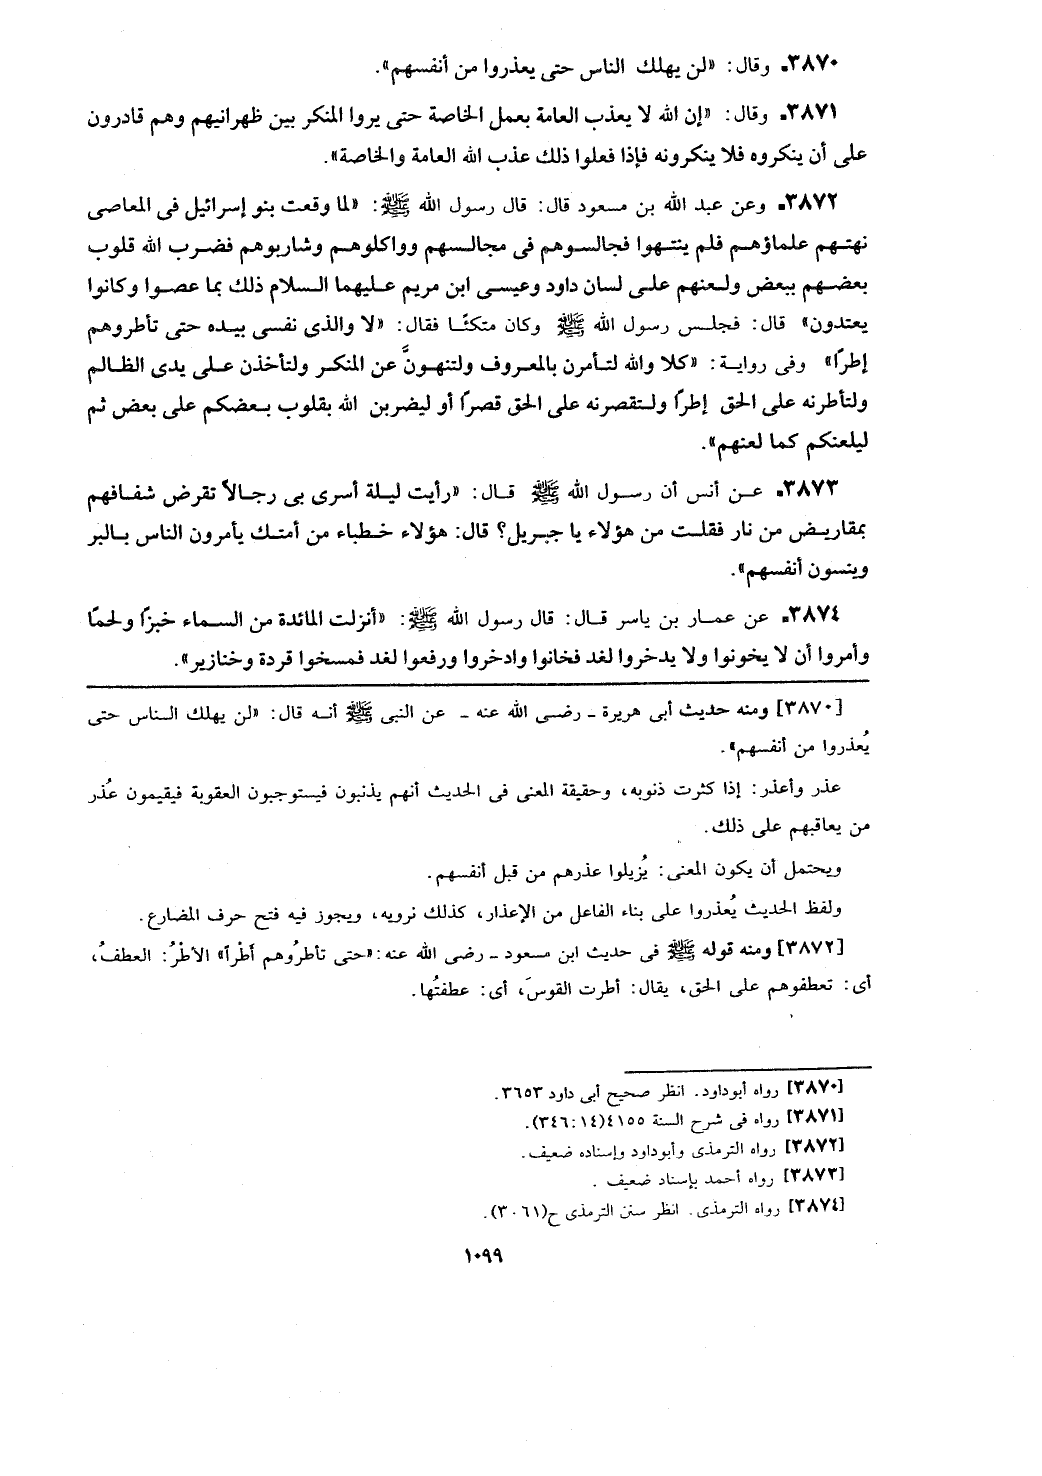 ٣٨٧٠. وقال: «لن يهلك الناس حتى يعذروا من أنفسهم».
٣٨٧١. وقال: «إن الله لا يعذب العامة بعمل الخاصة حتى يروا المنكر بين ظهرانيهم وهم قادرون
على أن ينكروه فلا ينكرونه فإذا فعلوا ذلك عذب الله العامة والخاصة».
٣٨٧٢. وعن عبد الله بن مسعود قال: قال رسول الله ﷺ: «لما وقعت بنو إسرائيل فى المعاصى
نهتهم علماؤهم فلم ينتهوا فجالسوهم فى مجالسهم وواكلوهم وشاربوهم فضرب الله قلوب
بعضهم ببعض ولعنهم على لسان داود وعيسى ابن مريم عليهما السلام ذلك بما عصوا وكانوا
يعتدون» قال: فجلس رسول الله ﷺ وكان متكئًا فقال: «لا والذى نفسى بيده حتى تأطروهم
إطرًا» وفى رواية: «كلا والله لتأمرن بالمعروف ولتنهونَّ عن المنكر ولتأخذن على يدى الظالم
ولتأطرنه على الحق إطرًا ولتقصرنه على الحق قصرًا أو ليضربن الله بقلوب بعضكم على بعض ثم
ليلعنكم كما لعنهم».
٣٨٧٣. عن أنس أن رسول الله ﷺ قال: «رأيت ليلة أسرى بى رجالاً تقرض شفافهم
بمقاريض من نار فقلت من هؤلاء يا جبريل؟ قال: هؤلاء خطباء من أمتك يأمرون الناس بالبر
وينسون أنفسهم».
٣٨٧٤. عن عمار بن ياسر قال: قال رسول الله ﷺ: «أنزلت المائدة من السماء خبزًا ولحمًا
وأمروا أن لا يخونوا ولا يدخروا لغد فخانوا وادخروا ورفعوا لغد فمسخوا قردة وخنازير».
[٣٨٧٠] ومنه حديث أبى هريرة ـ رضى الله عنه ـ عن النبى ﷺ أنه قال: «لن يهلك الناس حتى
يُعذروا من أنفسهم».
عذر وأعذر: إذا كثرت ذنوبه، وحقيقة المعنى فى الحديث أنهم يذنبون فيستوجبون العقوبة فيقيمون عُذر
من يعاقبهم على ذلك.
ويحتمل أن يكون المعنى: يُزيلوا عذرهم من قبل أنفسهم.
ولفظ الحديث يُعذروا على بناء الفاعل من الإعذار، كذلك نرويه، ويجوز فيه فتح حرف المضارع.
[٣٨٧٢] ومنه قوله ﷺ فى حديث ابن مسعود ـ رضى الله عنه:«حتى تأطرُوهم أَطْراً» الأطْرُ: العطفُ،
أى: تعطفوهم على الحق، يقال: أطرت القوسَ، أى: عطفتُها.
[٣٨٧٠] رواه أبوداود. انظر صحيح أبى داود ٣٦٥٣.
[٣٨٧١] رواه فى شرح السنة ٤١٥٥(٣٤٦:١٤).
[٣٨٧٢] رواه الترمذى وأبوداود وإسناده ضعيف.
[٣٨٧٣] رواه أحمد بإسناد ضعيف .
[٣٨٧٤] رواه الترمذى. انظر سنن الترمذى ح(٣٠٦١).
١٠٩٩